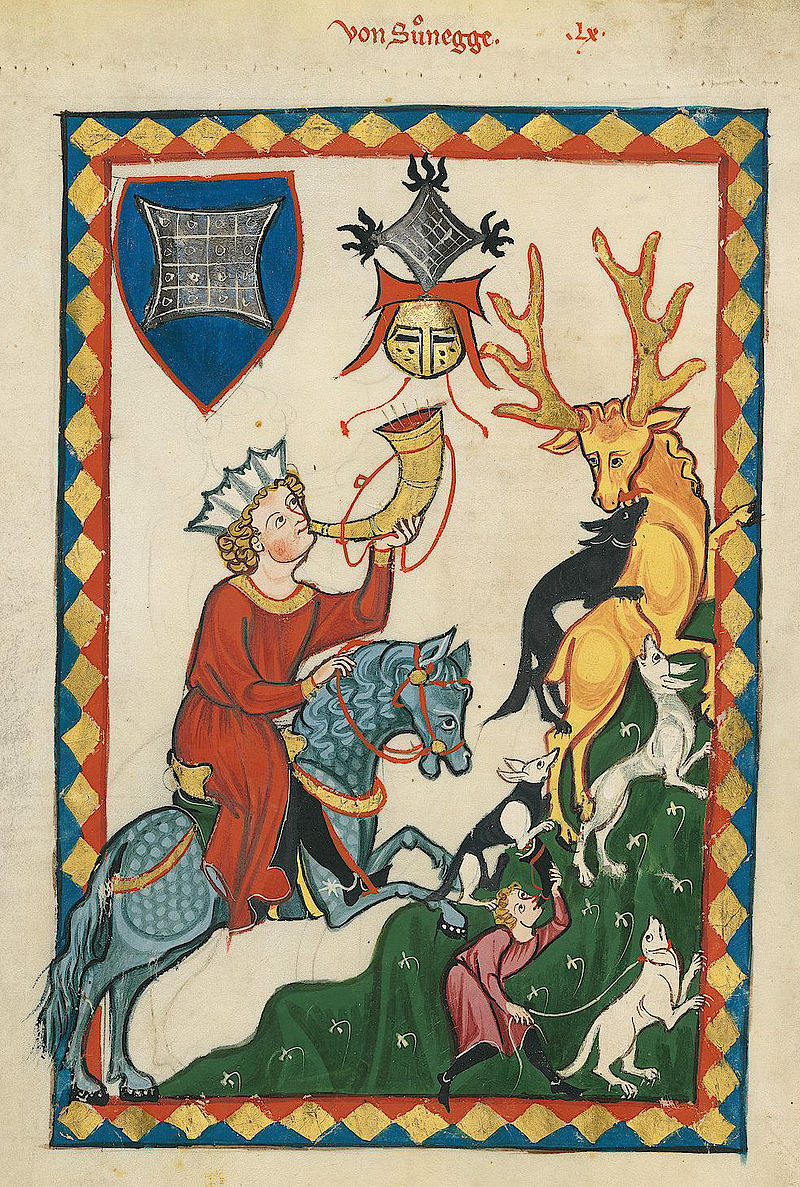 von Sůnegge. .Lx.